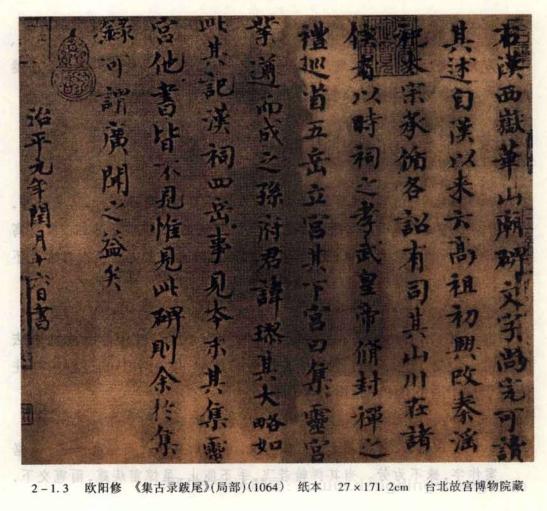 右漢西嶽華山廟碑文字尚完可讀
其述自漢以来云高祖初興改秦淫
祀太宗承循各詔有司其山川在諸
侯者以時祠之孝武皇帝脩封禪之
禮巡省五岳立宮其下宮曰集靈宮
業遵而成之孫府君諱璆其大略如
此其記漢祠四岳事見本末其集靈
宮他書皆不見惟見此碑則余於集
錄可謂廣聞之益矣
治平元年閏月十六日書
2-1.3 欧阳修 《集古录跋尾》(局部)(1064) 纸本 27×171.2cm 台北故宫博物院藏